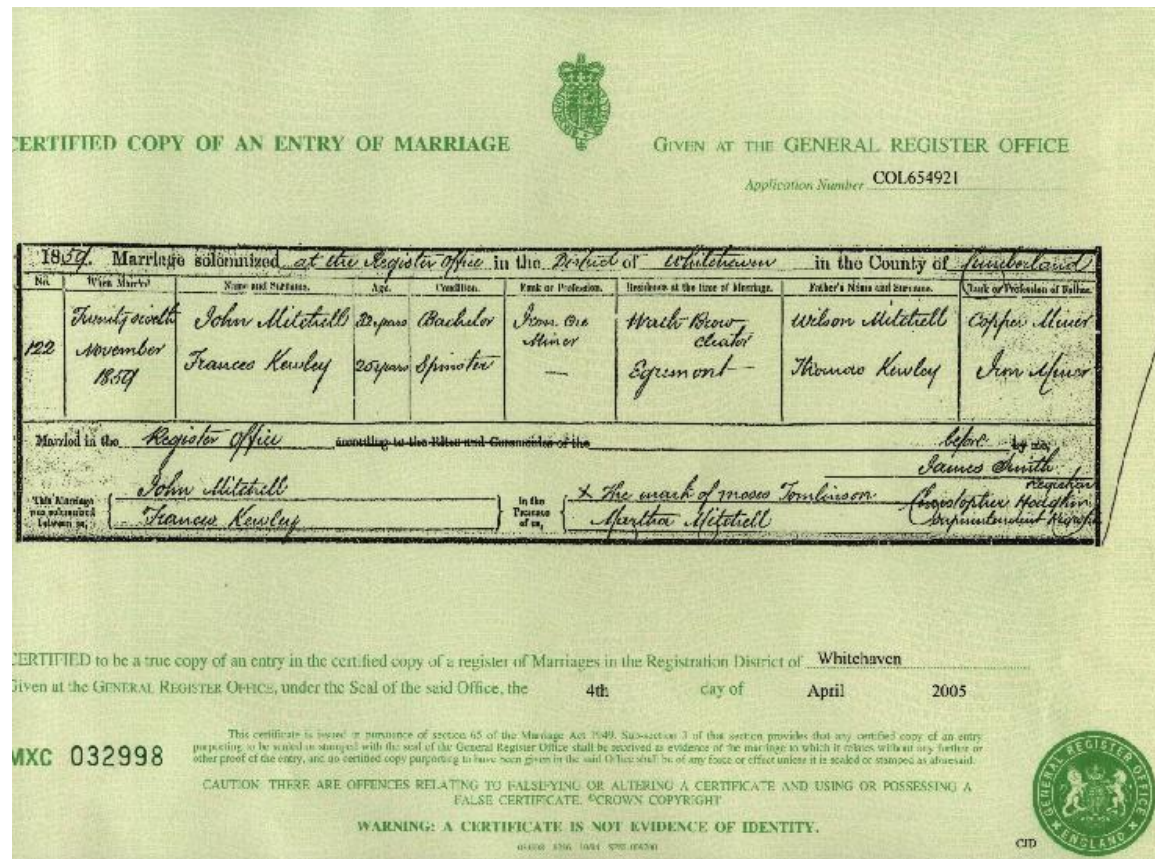 CERTIFIED COPY OF AN ENTRY OF MARRIAGE
GIVEN AT THE GENERAL REGISTER OFFICE
Application Number COL654921
1859. Marriage solemnized at the Register Office in the District of Whitehaven in the County of Cumberland
No. When Married Name and Surname. Age. Condition. Rank or Profession. Residence at the time of Marriage. Father's Name and Surname. Rank or Profession of Father.
122 November 1859
John Mitchell 22 years Bachelor Iron Ore Miner Wath Brow Cleator Wilson Mitchell Copper Miner
Frances Kewley 25 years Spinster — Egremont Thomas Kewley Iron Miner
Married in the Register Office according to the Rites and Ceremonies of the before by me,
James Smith Registrar
This Marriage was solemnized between us, John Mitchell
Frances Kewley
in the Presence of us, X The mark of Moses Tomlinson
Martha Mitchell
Christopher Hodgkin Superintendent Registrar
CERTIFIED to be a true copy of an entry in the certified copy of a register of Marriages in the Registration District of Whitehaven
Given at the GENERAL REGISTER OFFICE, under the Seal of the said Office, the 4th day of April 2005
MXC 032998
This certificate is issued in pursuance of section 65 of the Marriage Act 1949. Sub-section 3 of that section provides that any certified copy of an entry
purporting to be sealed or stamped with the seal of the General Register Office shall be received as evidence of the marriage to which it relates without any further or
other proof of the entry, and no certified copy purporting to have been given in the said Office shall be of any force or effect unless it is sealed or stamped as aforesaid.
CAUTION: THERE ARE OFFENCES RELATING TO FALSIFYING OR ALTERING A CERTIFICATE AND USING OR POSSESSING A
FALSE CERTIFICATE. ©CROWN COPYRIGHT
WARNING: A CERTIFICATE IS NOT EVIDENCE OF IDENTITY.
CJD
GENERAL REGISTER OFFICE
ENGLAND